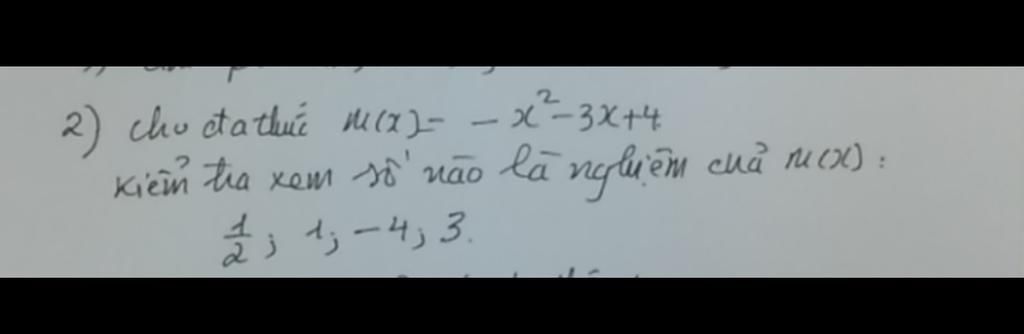 2) cho đa thức M(x) = - x² - 3x + 4
Kiểm tra xem số nào là nghiệm của M(x) :
1/2 ; 1 ; - 4 ; 3.